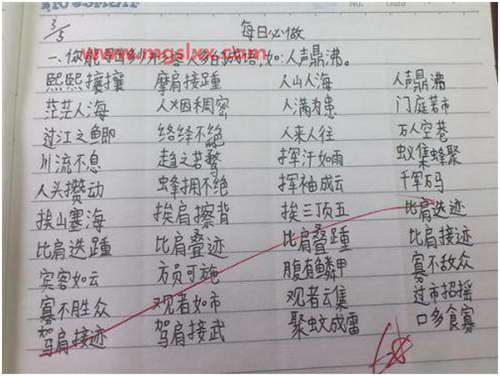 3/5
每日必做
www.mgslxx.com
一、你能 人 成语,如:人声鼎沸。
熙熙攘攘 摩肩接踵 人山人海 人声鼎沸
茫茫人海 人烟稠密 人满为患 门庭若市
过江之鲫 络绎不绝 人来人往 万人空巷
川流不息 趋之若鹜 挥汗如雨 蚁集蜂聚
人头攒动 蜂拥不绝 挥袖成云 千军万马
挨山塞海 挨肩擦背 挨三顶五 比肩迭迹
比肩迭踵 比肩叠迹 比肩叠踵 比肩接迹
宾客如云 方员可施 腹有鳞甲 寡不敌众
寡不胜众 观者如市 观者云集 过市招摇
驾肩接迹 驾肩接武 聚蚊成雷 口多食寡